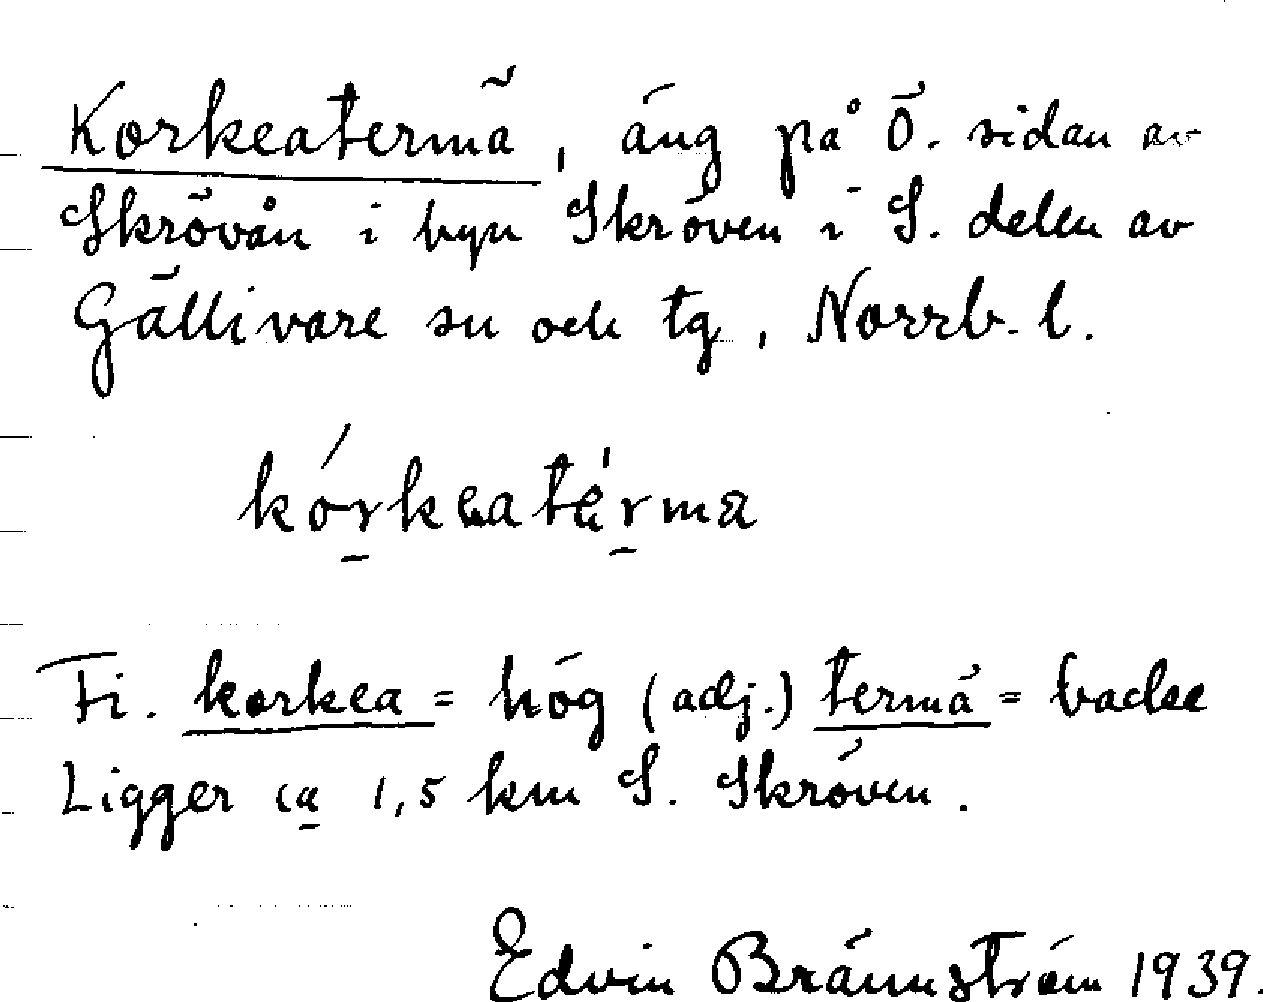 Korkeatermä, äng på Ö. sidan av
Skrövån i byn Skröven i S. delen av
Gällivare sn och tg, Norrb. l.
kórkeatérmä
Fi. korkea = hög (adj.) termä = backe
Ligger ca 1,5 km S. Skröven.
Edvin Brännström 1939.